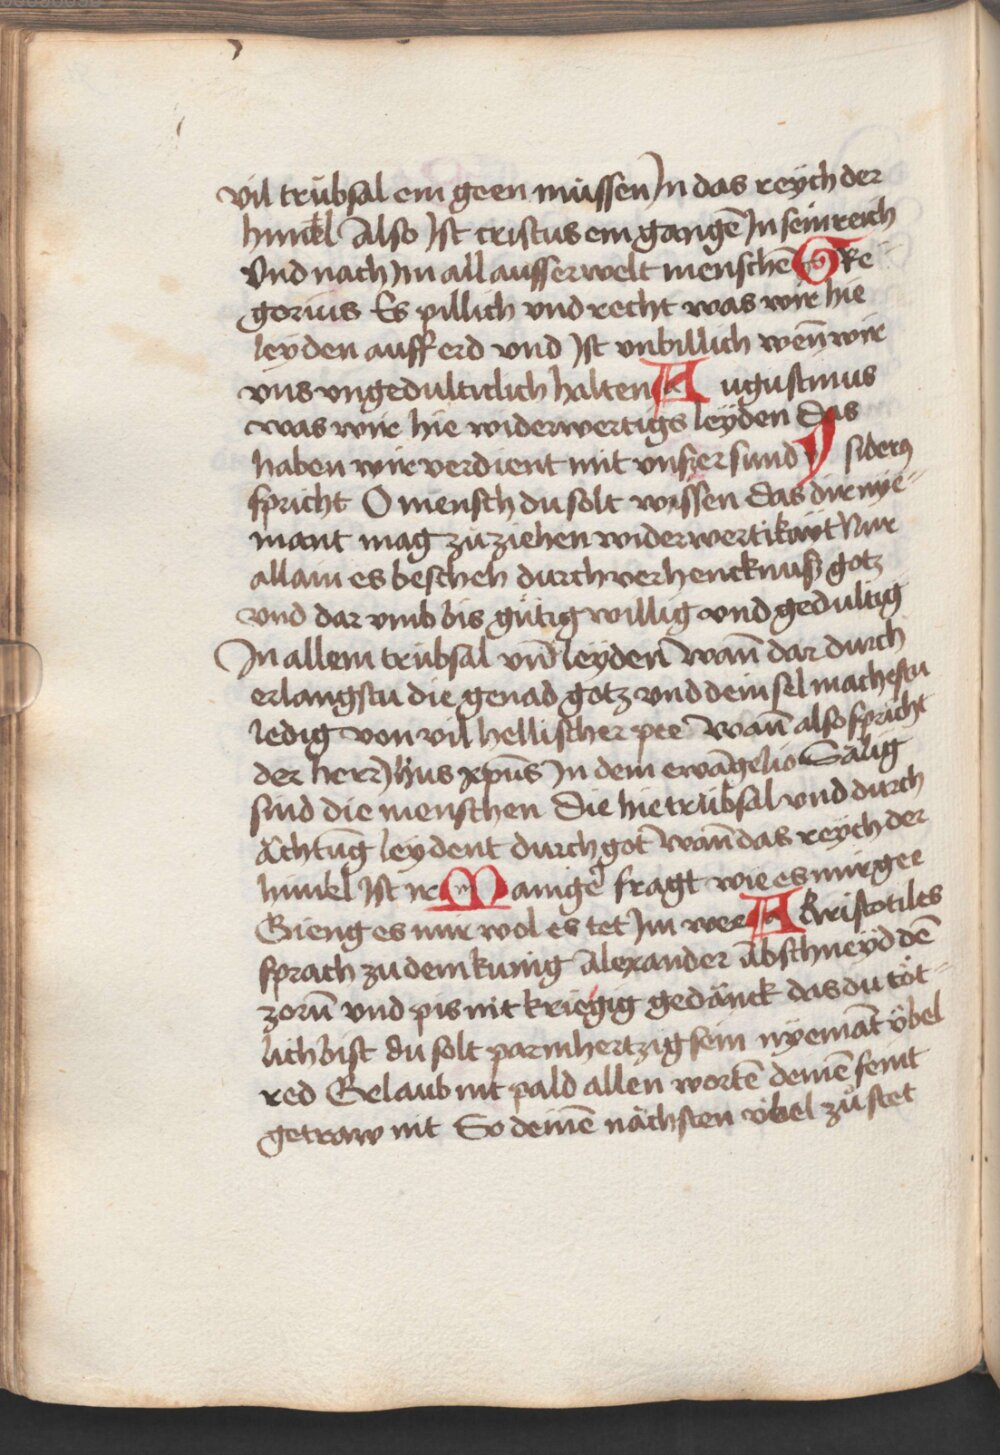 vil trübsal ein geen müssen In das reÿch der
himel Also Ist cristus ein gangē In sein reich
Vnd nach Im all ausserwelt menschē Gre
gorius Es pillich vnd recht was wir hie
leyden auff erd vnd Ist vnbillich wen̄ wir
vns vngedultitlich halten Augustinus
was wir hie widerwertigs leÿden das
haben wir verdient mit vnßer sund Ysiderꝰ
spricht O mensch du solt wissen das dir nye
mant mag zu ziehen widerwertikayt Nur
allain es bescheh durch verhencknuß gotz
vnd dar vmb bis gütig willig vnd gedultig
In allem trübsal vn̄ leÿden wan̄ dar durch
erlangstu die genad gotz vnd dein sel machestu
ledig von vil hellischer pee wan̄ also spricht
der herr Ihūs xpūs In dem ewāgelio Sälig
sind die menschen die hie trübsal vnd durch
ächtūg leydent durch got wan̄ das reÿch der
himel Ist ir Maniger fragt wie es mir gee
Gieng es mir wol es tet Im wee Aristotiles
sprach zu dem kunig Alexander Abschneÿd dē
zorn̄ vnd pis nit kriegig gedänck das du töt
lich bist du solt parmhertzig sein nyemāt übel
red Gelaub nit pald allen wortē deinē feint
getraw nit So deinē nächsten übel zu stet